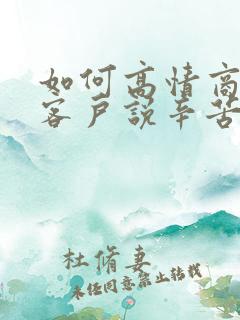 如何高情商
客户说辛苦
杜脩妻
未经同意禁止转载